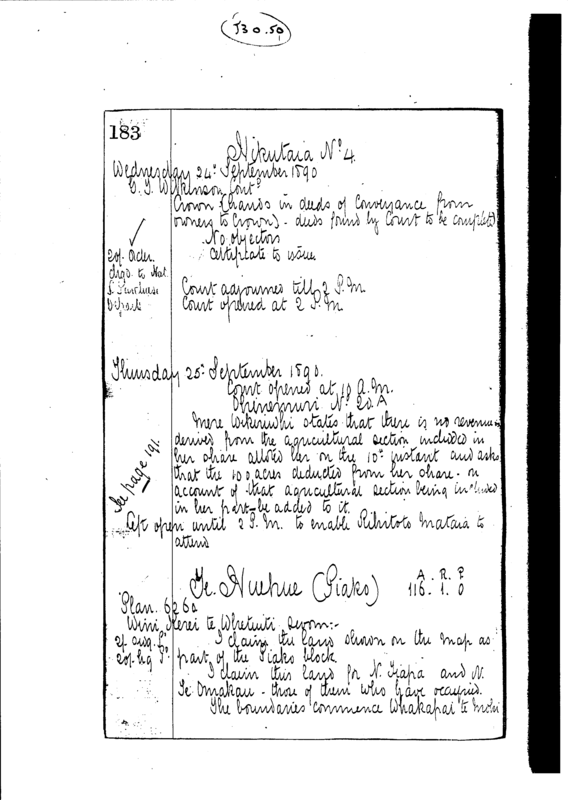 J30.50
183
Hikutaia No 4.
Wednesday 24th September 1890
C. J. Wilkinson cont.
Crown (hands in deeds of Conveyance from
owners to Crown) - deeds found by Court to be complete
No objectors
Certificate to issue
Order
to Nat
L. Purchase
Court adjourned till 2 P.M.
Court opened at 2 P.M.
Thursday 25th September 1890.
Court opened at 10 A.M.
Ohinemuri No 20A
Mere states that there is no revenue
derived from the agricultural section included in
her share allotted her on the 10th instant and asks
that the 100 acres deducted from her share - on
account of that agricultural section being included
in her part - be added to it.
See page 191.
Left open until 2 P.M. to enable Rihitoto Mataia to
attend
Te Huehue (Piako) A. R. P.
116. 1. 0
Plan. 6260
Wini Kerei te Whetuiti sworn:-
I claim the land shown on the map as
part of the Piako block
I claim this land for N. Tiapa and N.
Te Omakau - those of them who have occupied.
The boundaries commence Whakapai te